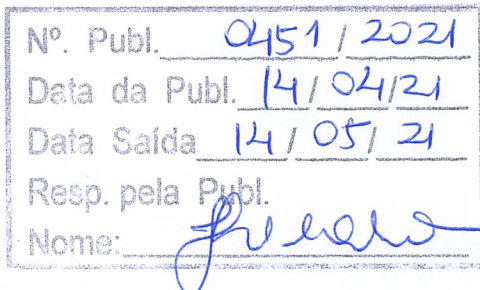 Nº. Publ. 0451 / 2021
Data da Publ. 14 / 04 / 21
Data Saída 14 / 05 / 21
Resp. pela Publ.
Nome: